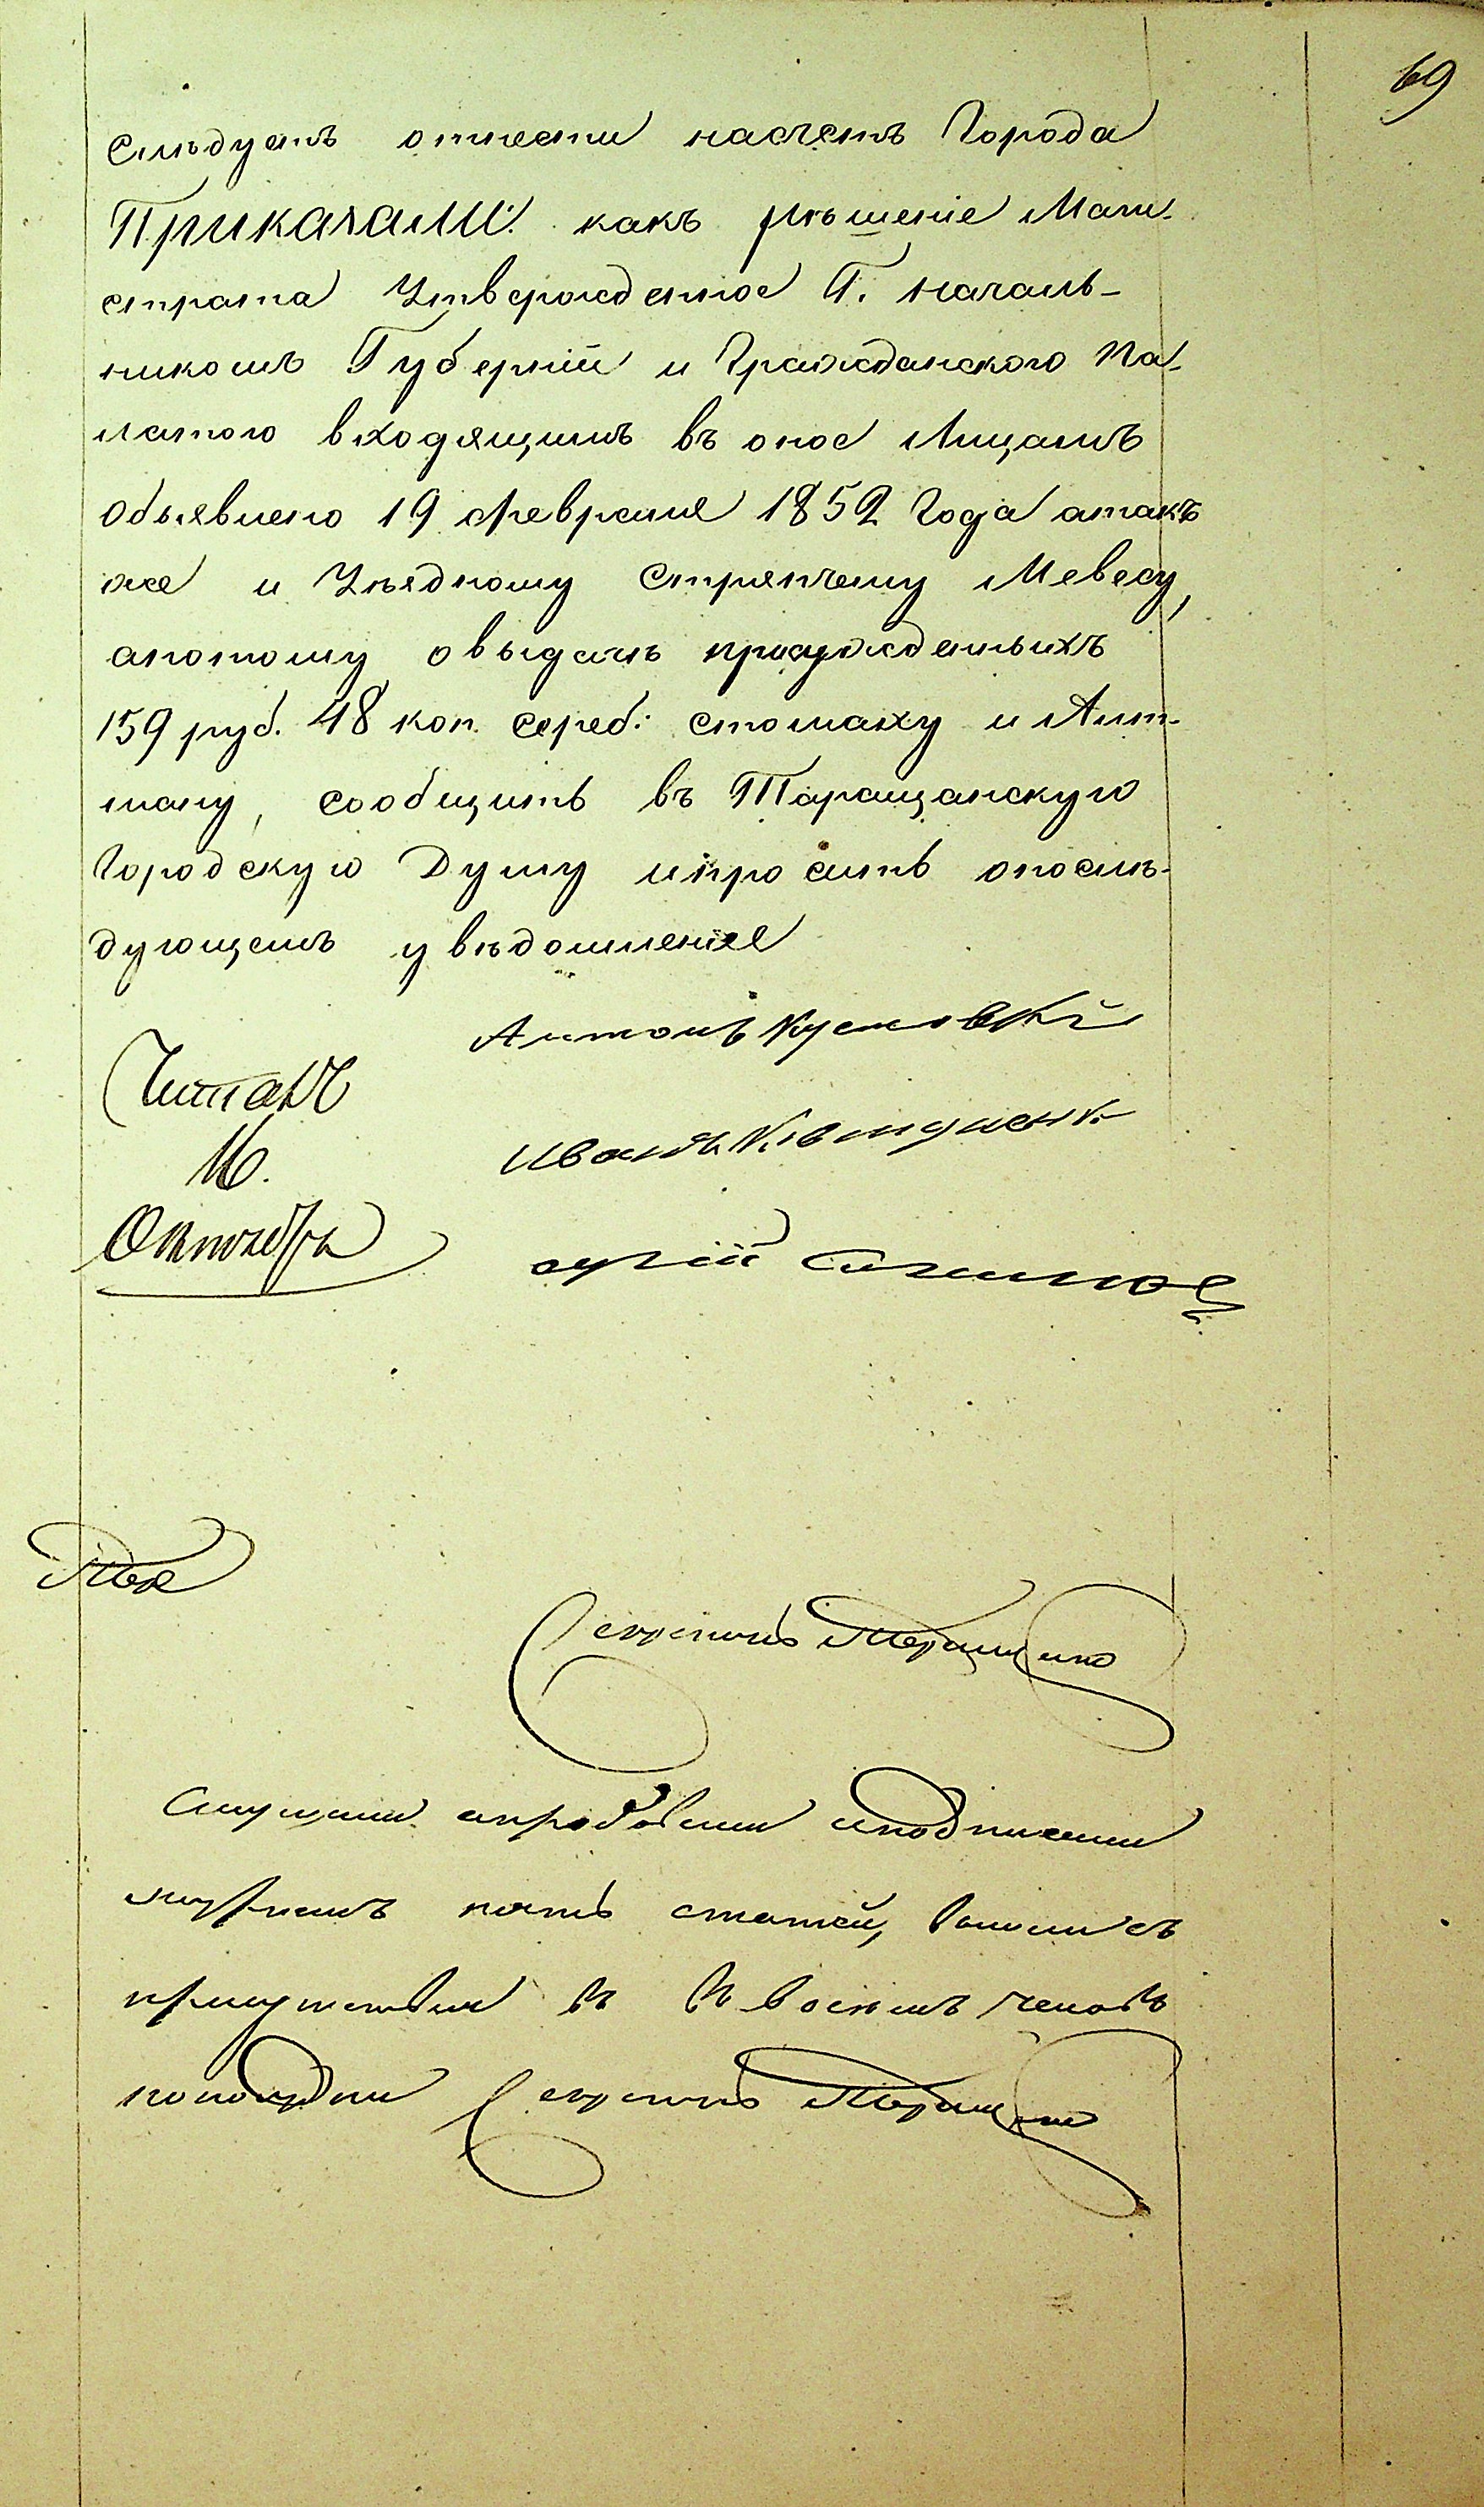 69
слѣдуетъ отнести насчетъ Города
Приказали: какъ рѣшеніе Маги-
страта Утвержденное Г. Началь-
никомъ Губерніи и Гражданскою Па-
латою входящимъ въ оное Лицамъ
объявлено 19 Февраля 1852 Года атакъ
же и Уѣздному Стряпчему Мевесу,
апотому овыдачѣ присужденныхъ
159 руб. 48 коп. сереб: Стомаху и Лит-
ману, сообщить въ Таращанскую
Городскую Думу ипросить опослѣ-
дующемъ увѣдомленіе
Антонъ
Читалъ
16.
Октября
Иванъ
Секретарь
Слушали и подписали
журналъ пять статей, вышли съ
присутствія въ часовъ
пополудни Секретарь